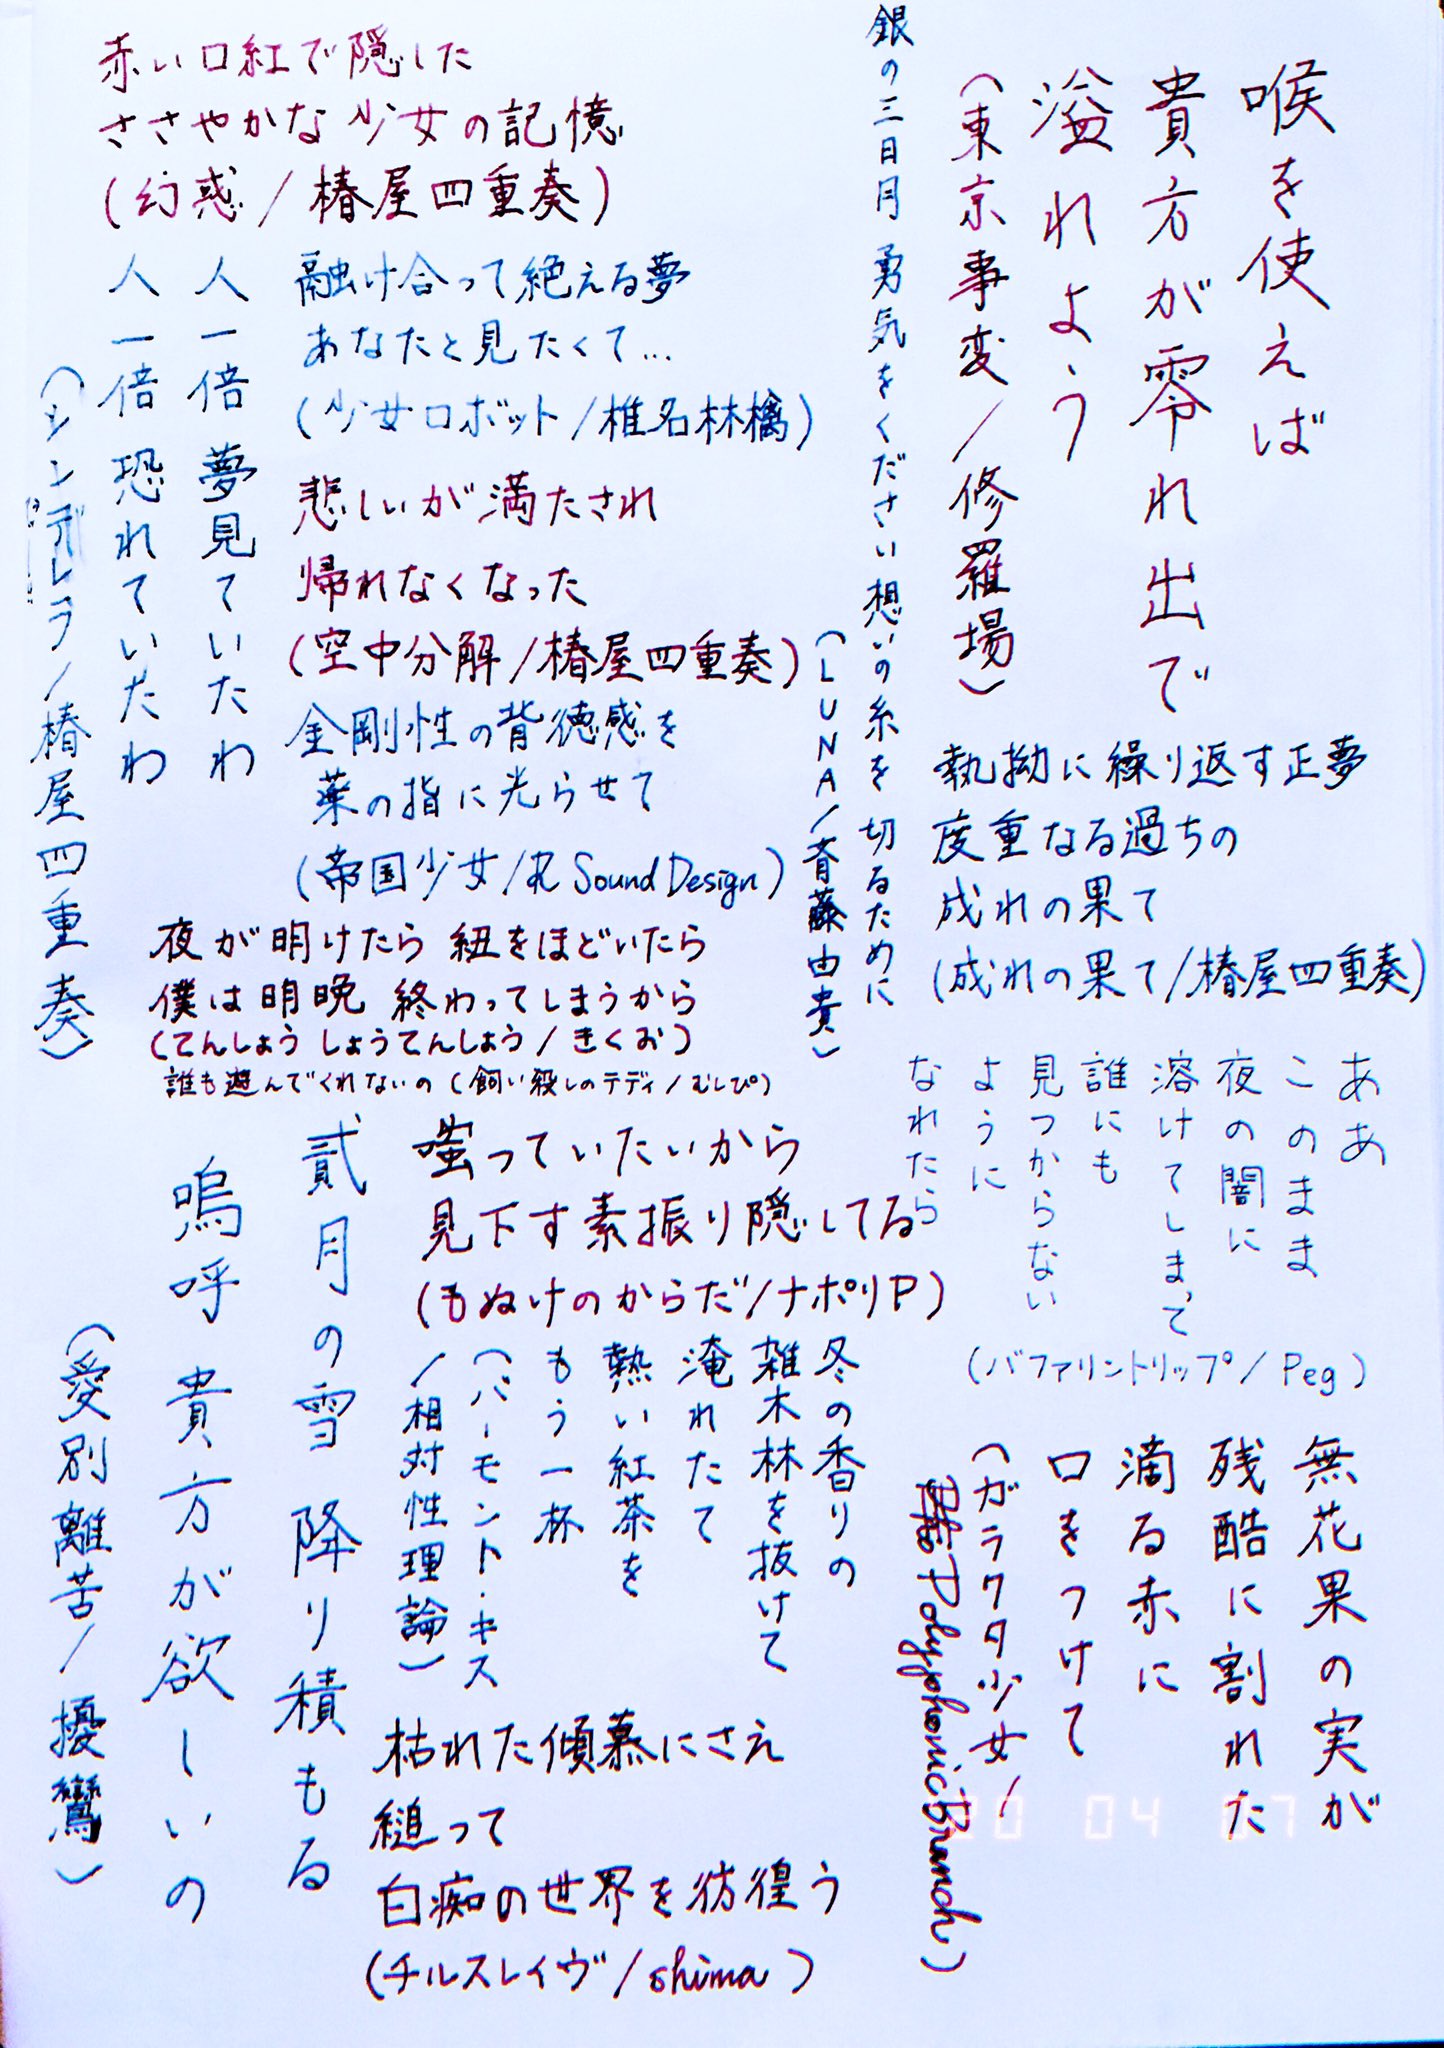 喉を使えば
貴方が零れ出で
溢れよう
(東京事変/修羅場)
銀の三日月 勇気をください想いの糸を 切るために
(LUNA/斉藤由貴)
赤い口紅で隠した
ささやかな少女の記憶
(幻惑/椿屋四重奏)
融け合って絶える夢
あなたと見たくて…
(少女ロボット/椎名林檎)
人一倍夢見ていたわ
人一倍恐れていたわ
(シンデレラ/椿屋四重奏)
悲しいが満たされ
帰れなくなった
(空中分解/椿屋四重奏)
金剛性の背徳感を
薬の指に光らせて
(帝国少女/R Sound Design)
執拗に繰り返す正夢
度重なる過ちの
成れの果て
(成れの果て/椿屋四重奏)
夜が明けたら 紐をほどいたら
僕は明晩 終わってしまうから
(てんしょう しょうてんしょう/きくお)
誰も遊んでくれないの(飼い殺しのテディ/むしぴ)
ああ
このまま
夜の闇に
溶けてしまって
誰にも
見つからない
ように
なれたら
(バファリントリップ/Peg)
嗤っていたいから
見下す素振り隠してる
(もぬけのからだ/ナポリP)
貳月の雪 降り積もる
嗚呼 貴方が欲しいの
(愛別離苦/擾鸞)
冬の香りの
雑木林を抜けて
淹れたて
熱い紅茶を
もう一杯
(バーモント・キス
/相対性理論)
無花果の実が
残酷に割れた
滴る赤に
口きつけて
(ガラクタ少女/
PolyphonicBranch)
枯れた傾慕にさえ
縋って
白痴の世界を彷徨う
(チルスレイヴ/shima)
20 04 07